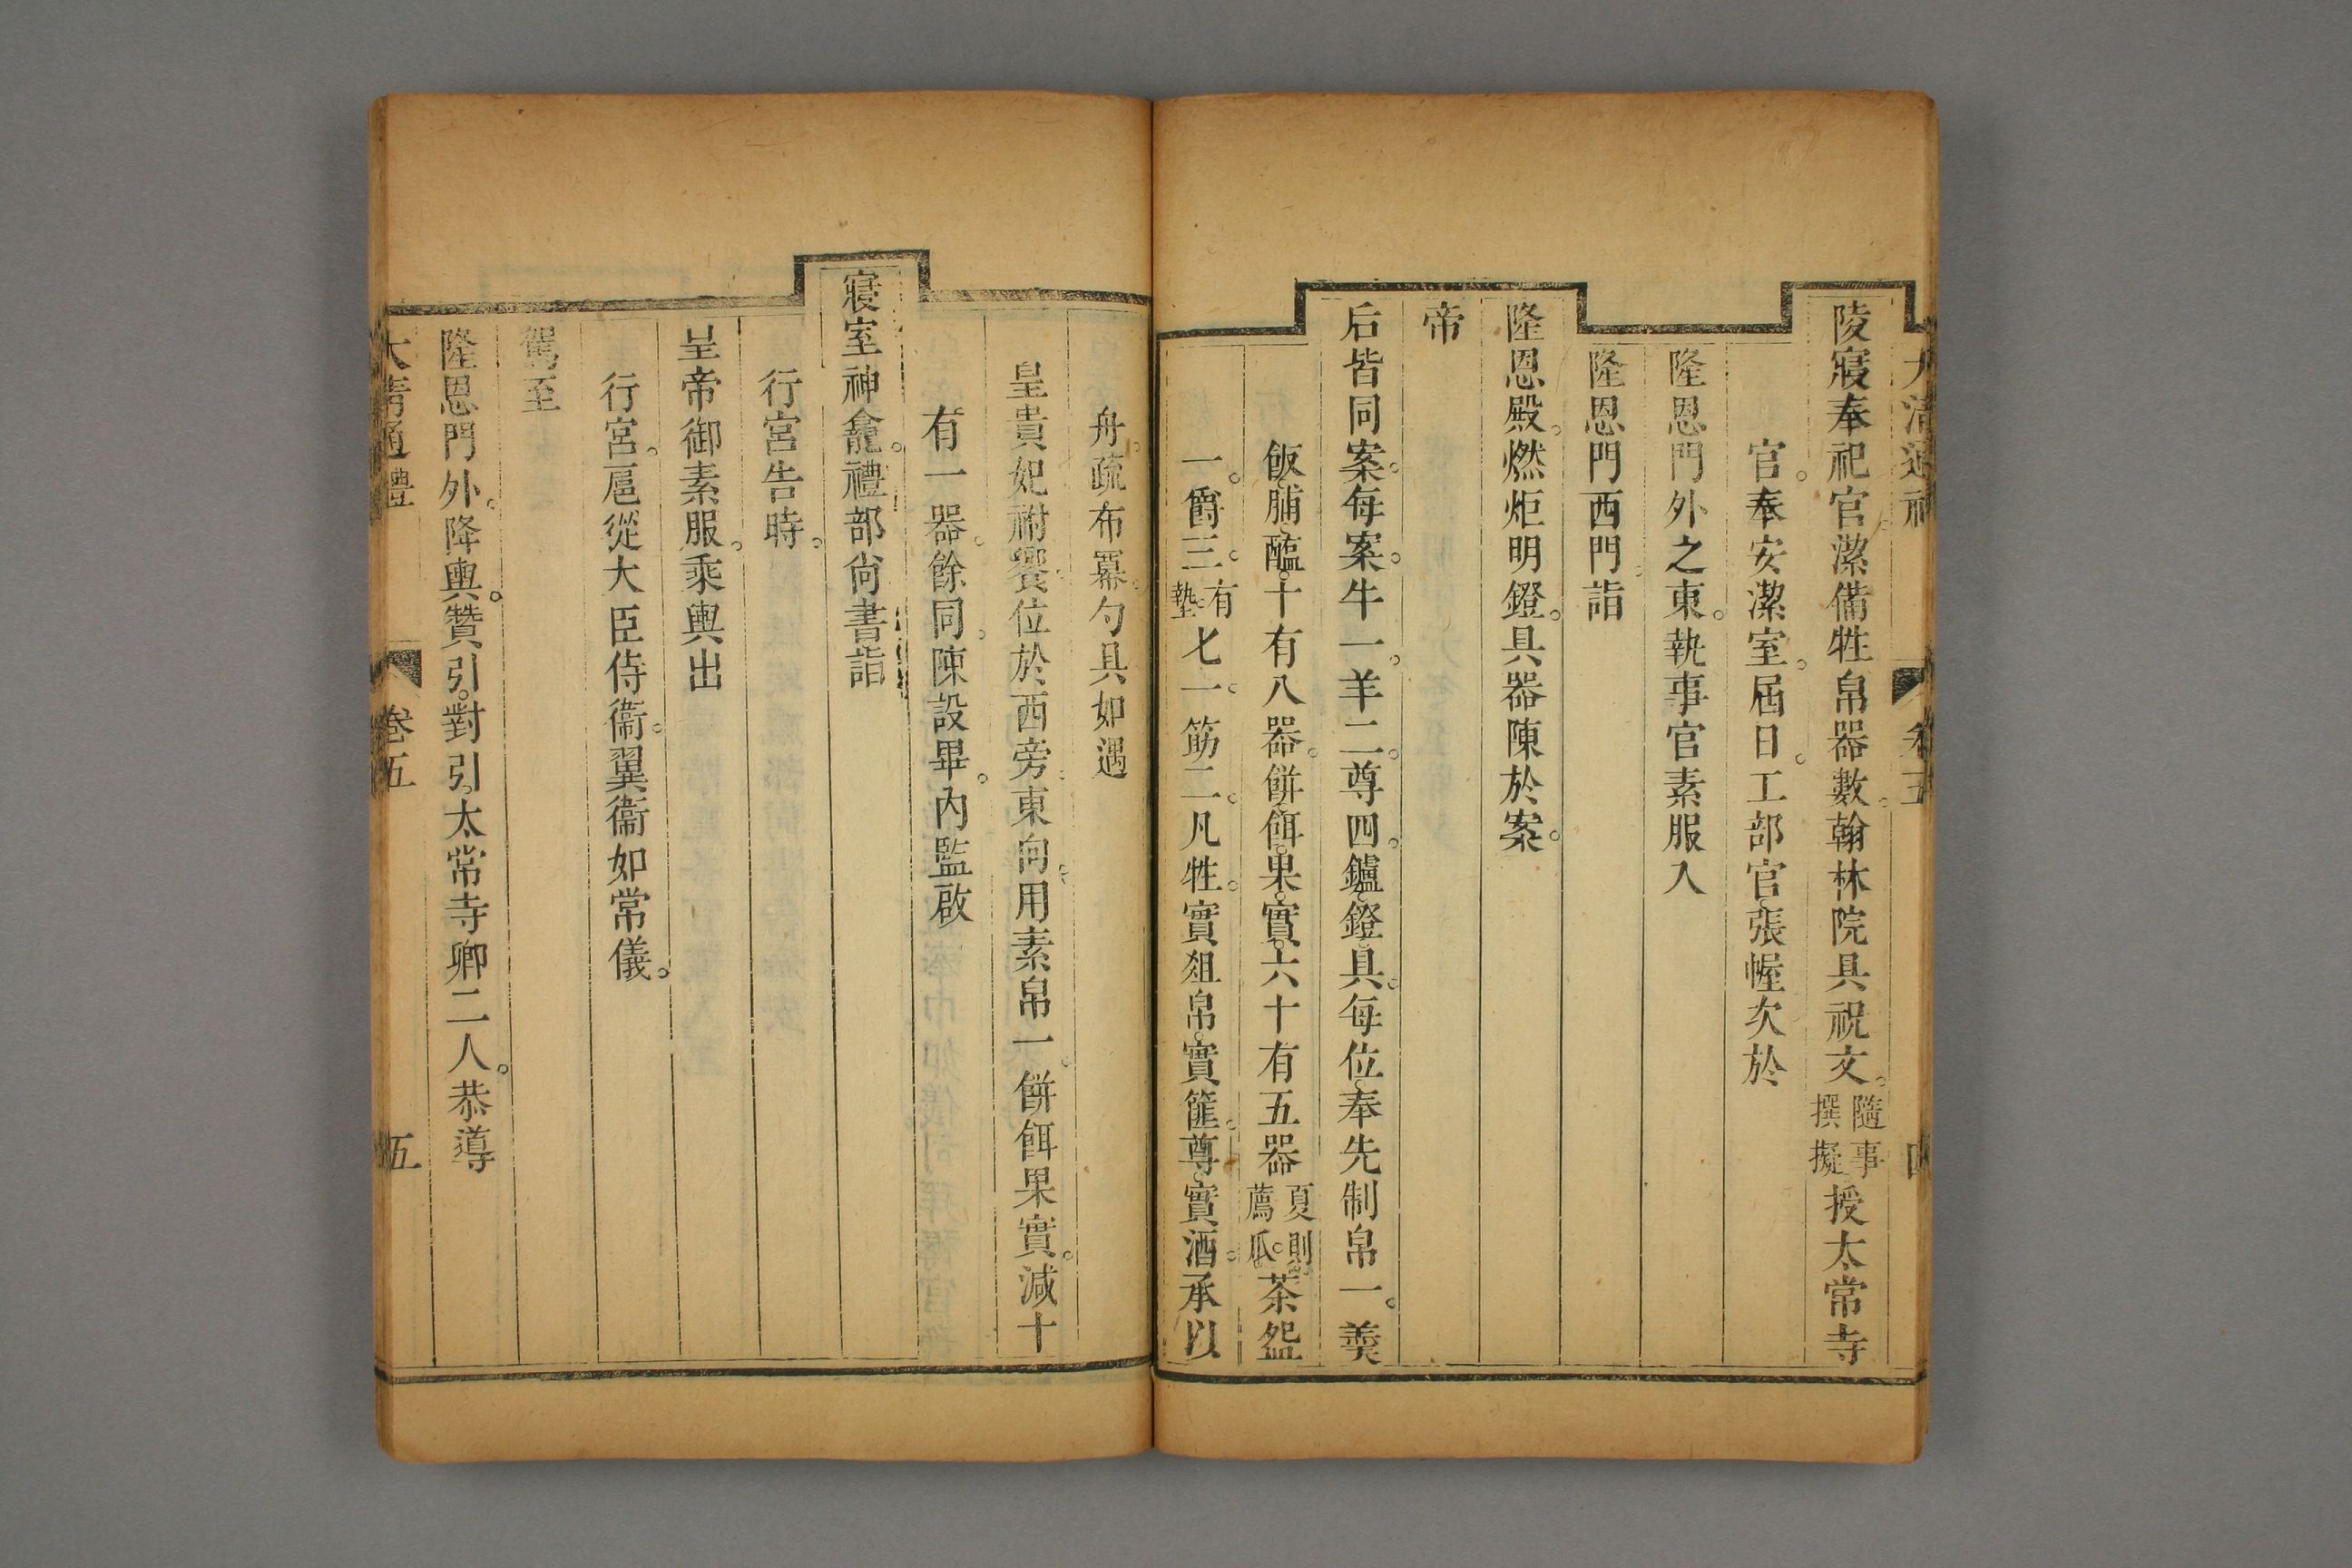 大清通禮 卷五 四
陵寢奉祀官潔備牲帛器數翰林院具祝文隨事撰擬授太常寺
官奉安潔室。屆日。工部官張幄次於
隆恩門外之東。執事官素服入
隆恩門西門詣
隆恩殿。燃炬明鐙。具器陳於案。
帝
后皆同案。每案。牛一。羊二。尊四。鑪鐙具。每位奉先制帛一。羹
飯脯醢十有八器。餅餌果實六十有五器夏則薦瓜。茶盌
一。爵三。有墊七一。筯二。凡牲。實俎帛實篚。尊實酒。承以
舟。疏布冪勺具如遇
皇貴妃祔饗位於西旁東向。用素帛一。餅餌果實。減十
有一器。餘同。陳設畢。內監啟
寢室神龕。禮部尙書詣
行宮告時。
皇帝御素服。乘輿出
行宮。扈從大臣侍衞。翼衞如常儀。
駕至
隆恩門外。降輿。贊引。對引太常寺卿二人。恭導
大清通禮 卷五 五